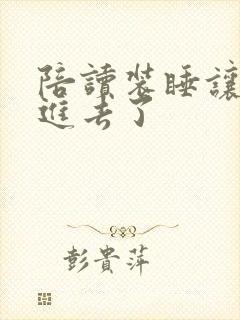 陪讀装睡讓
進去了
彭貴萍